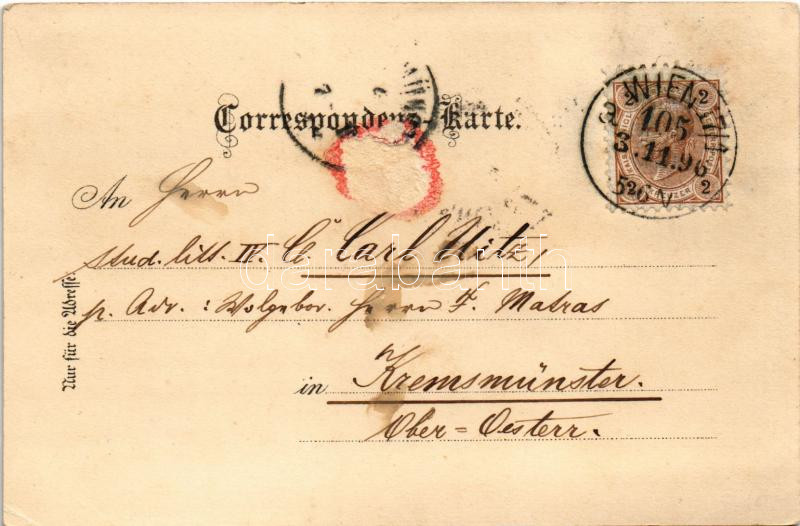 Correspondenz-Karte.
WIEN
105
3.11.96
2 2
2 2
KREUZER
An Herrn
stud. litt. IV. Cl. Carl Uitz,
darabanth
p. Adr. : Wolgebor. Herrn F. Matras
in Kremsmünster.
Ober=Oesterr.
Nur für die Adresse.